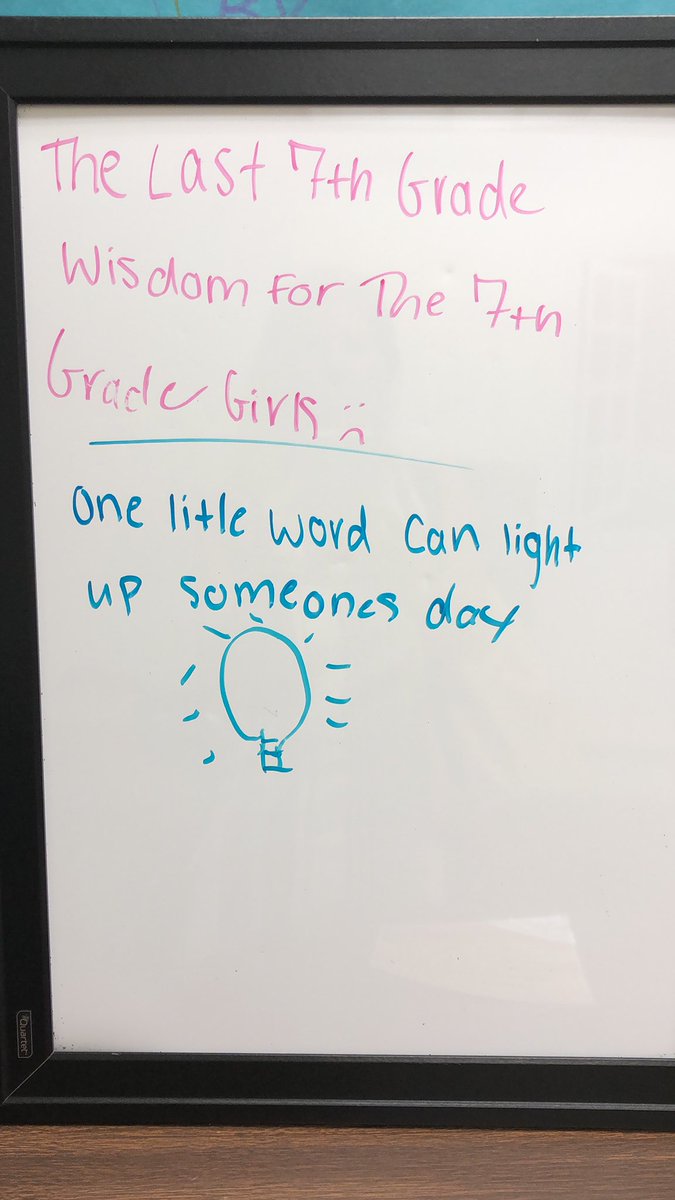 The Last 7th Grade
Wisdom For The 7th
Grade Girls :(
One litle word can light
up someones day
Quartet